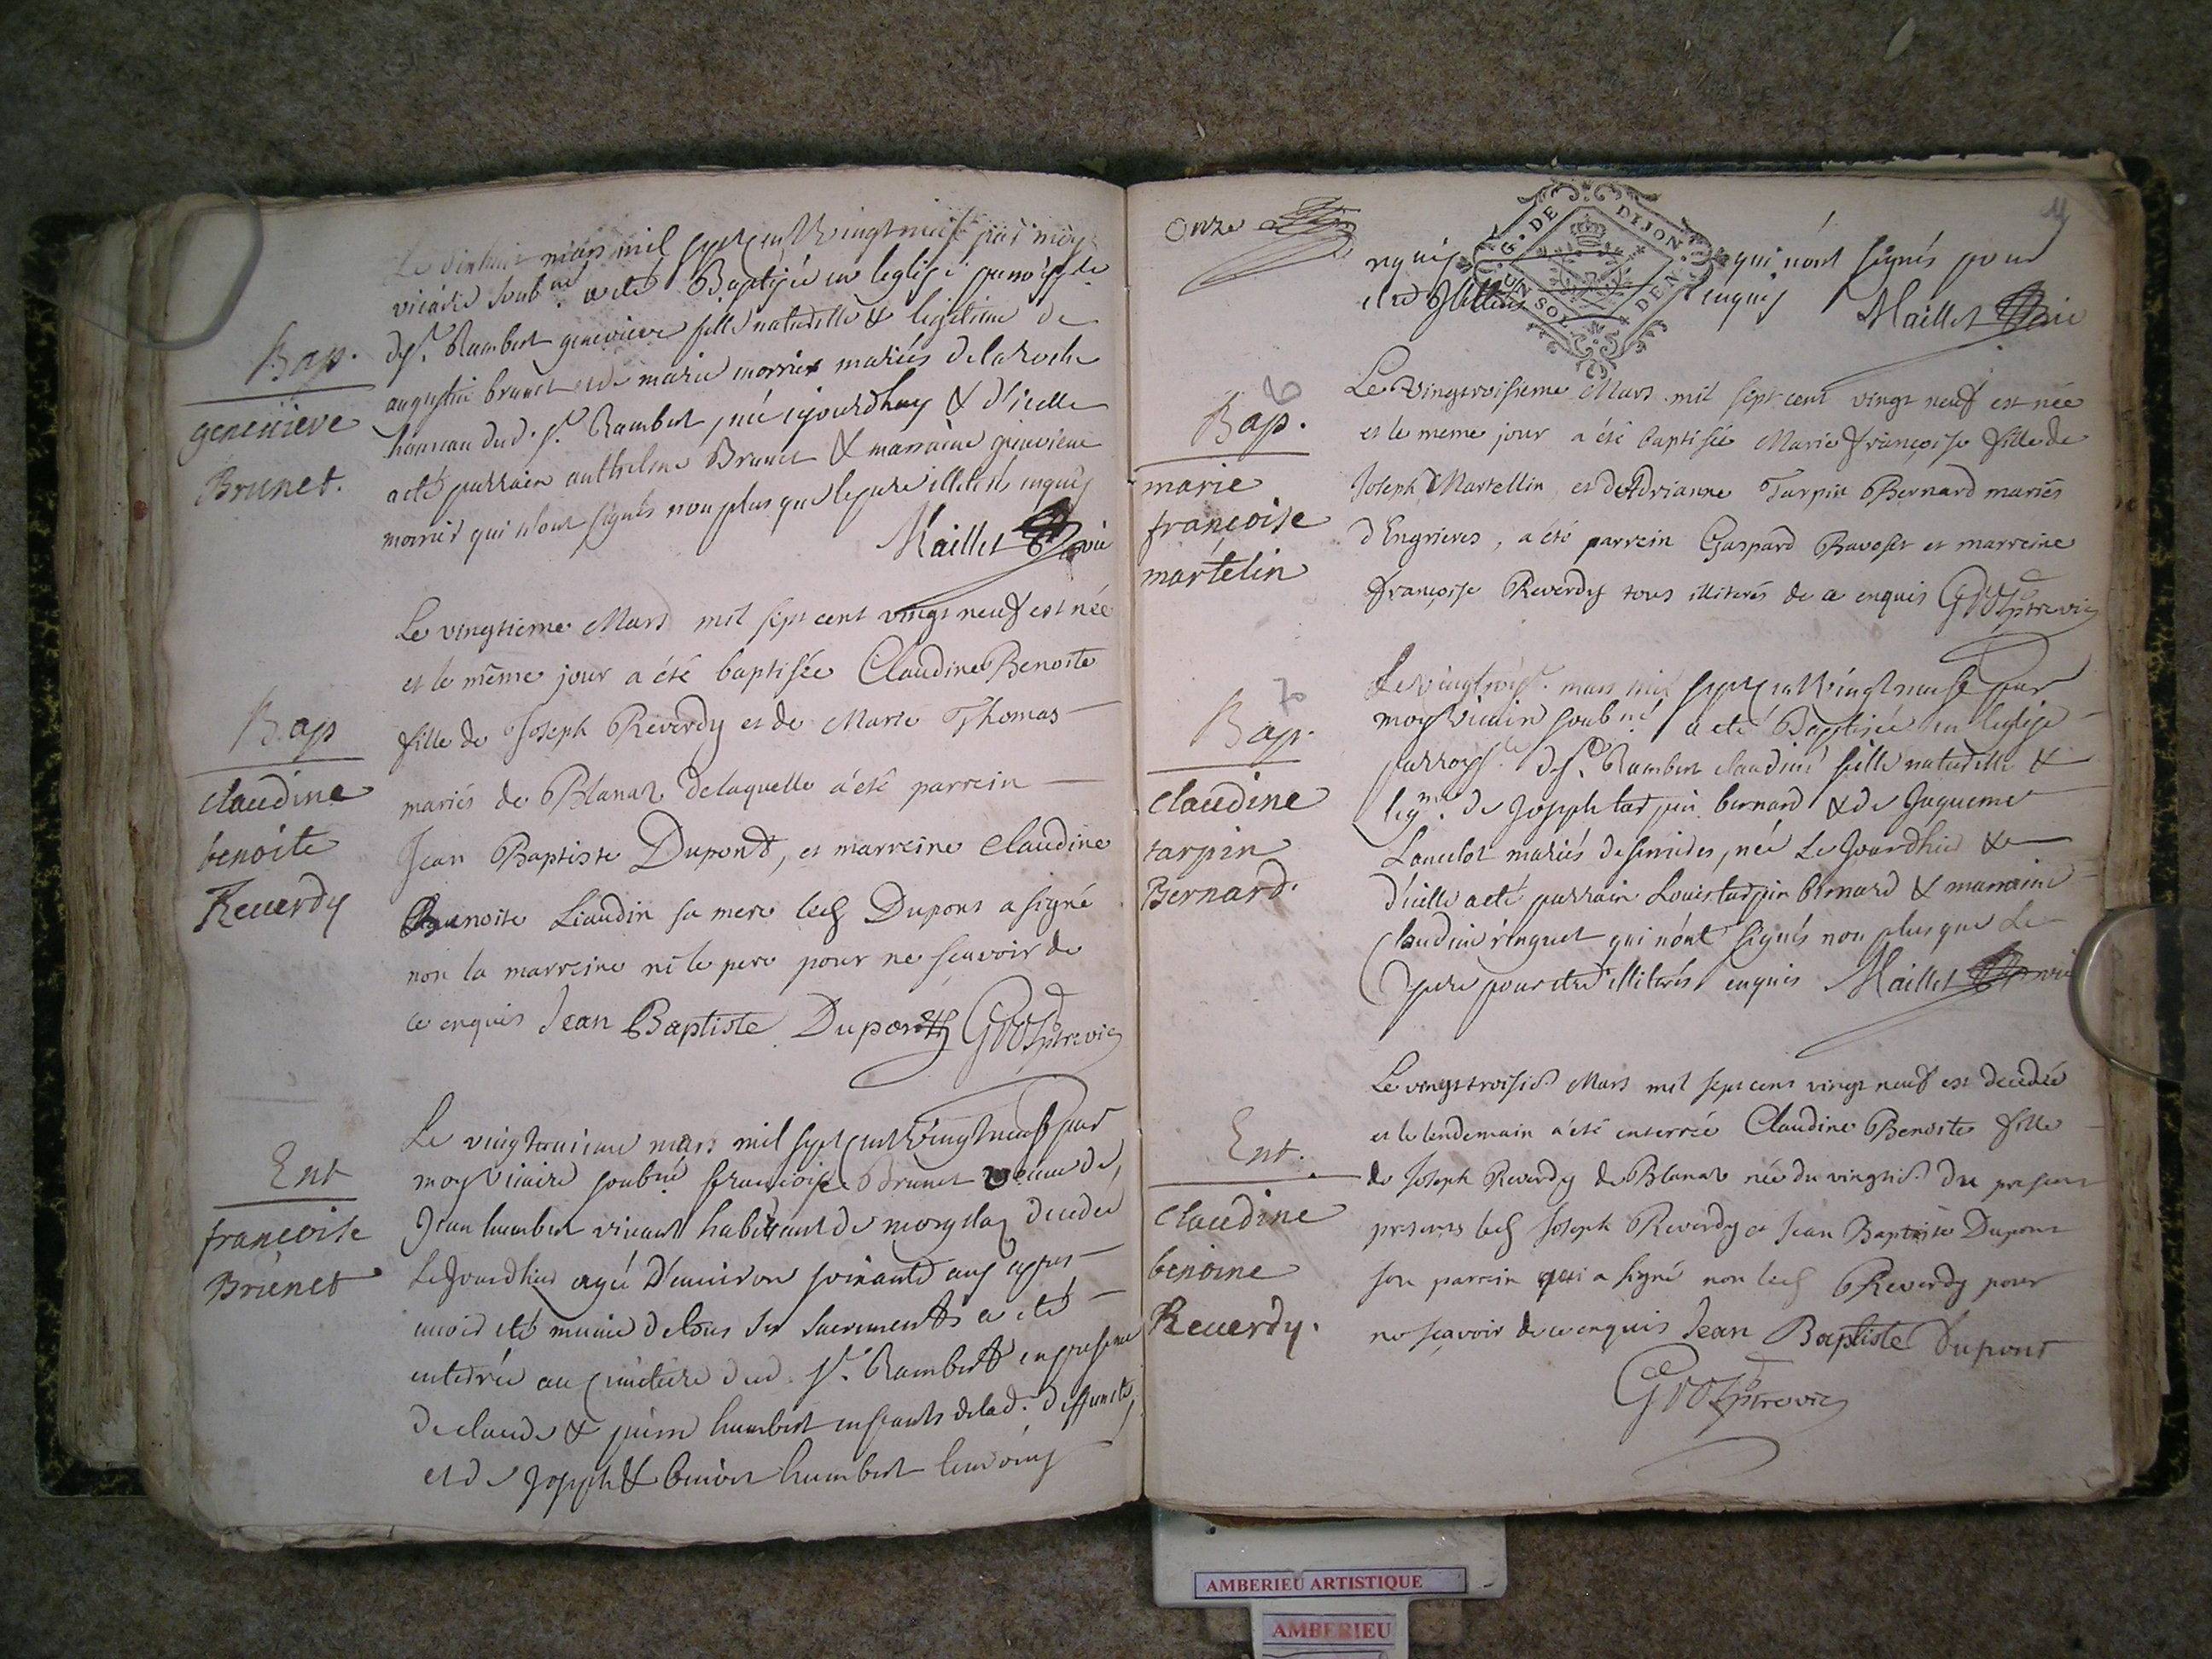 Bap.
genevieve
Brunet.
mars mil sept cent vingt neuf par moy
vicaire soubné a eté Baptisée en leglise
de St. Rambert genevieve fille naturelle & legitime de
augustin brunet et de marie morrier mariés de la Roche
hameau dud. St. Rambert, née cejourdhuy & d'icelle
a eté parrain anthelme Brunet & marraine genevieve
morrier qui n'ont signés non plus que le pere illiterés enquis
Maillet vic
Bap
claudine
benoite
Reuerdy
Le vingtieme Mars mil sept cent vingt neuf est née
et le même jour a été baptisée Claudine Benoite
fille de Joseph Reverdy et de Marie Thomas
mariés de Blanaz de laquelle a été parrein
Jean Baptiste Dupont, et marreine Claudine
Benoite Liaudin sa mere led Dupont a signé
non la marreine ni le pere pour ne scavoir de
ce enquis Jean Baptiste Dupont ptre vic
Ent
françoise
Brunet
Le vingt mars mil sept cent vingt neuf par
moy vicaire soubné françoise Brunet veuve de
Jean humbert vivant habitant de decedée
Le Jourdhier agée D'environ soixante ans apres
avoir eté munie de tous ses sacrements a eté
enterrée au cimetiere dud. St. Rambert en presence
de claude & pierre humbert enfants de lad. deffuncte,
et de Joseph & benoit humbert
Onze
11
requis qui nont signés pour
etre illiteres enquis
Maillet vic
6
Bap.
marie
françoise
martelin
Le Vingtroisieme Mars mil sept cent vingt neuf est née
et le meme jour a été baptisée Marie françoise fille de
Joseph Martellin et de Adrianne Tarpin Bernard mariés
d'Engrieres, a été parrein Gaspard Ravoset et marreine
françoise Reverdy tous illiterés de ce enquis ptre vic
7
Bap.
claudine
tarpin
Bernard.
Le mars mil sept cent vingt neuf par
moy Vicaire soubné a eté Baptisée en leglise
parroysle de St. Rambert claudine fille naturelle &
legme. de Joseph tarpin bernard & de Jaqueme
Lancelot mariés de serrieres, née Le Jourdhui &
d'icelle a eté parrain Louis tarpin bernard & marraine
Claudine ringuet qui n'ont signés non plus que Le
pere pour etre illiterés enquis Maillet vic
Ent.
claudine
benoine
Reuerdy.
Le vingt troisie Mars mil sept cens vingt neuf est decedée
et le lendemain a été enterrée Claudine Benoite fille
de Joseph Reverdy de Blanaz née du vingtie du present
presents led Joseph Reverdy et Jean Baptiste Dupont
son parrein qui a signé non led Reverdy pour
ne sçavoir de ce enquis Jean Baptiste Dupont
ptre vic
G. DE DIJON
UN SOL
DEN
AMBERIEU ARTISTIQUE
AMBERIEU